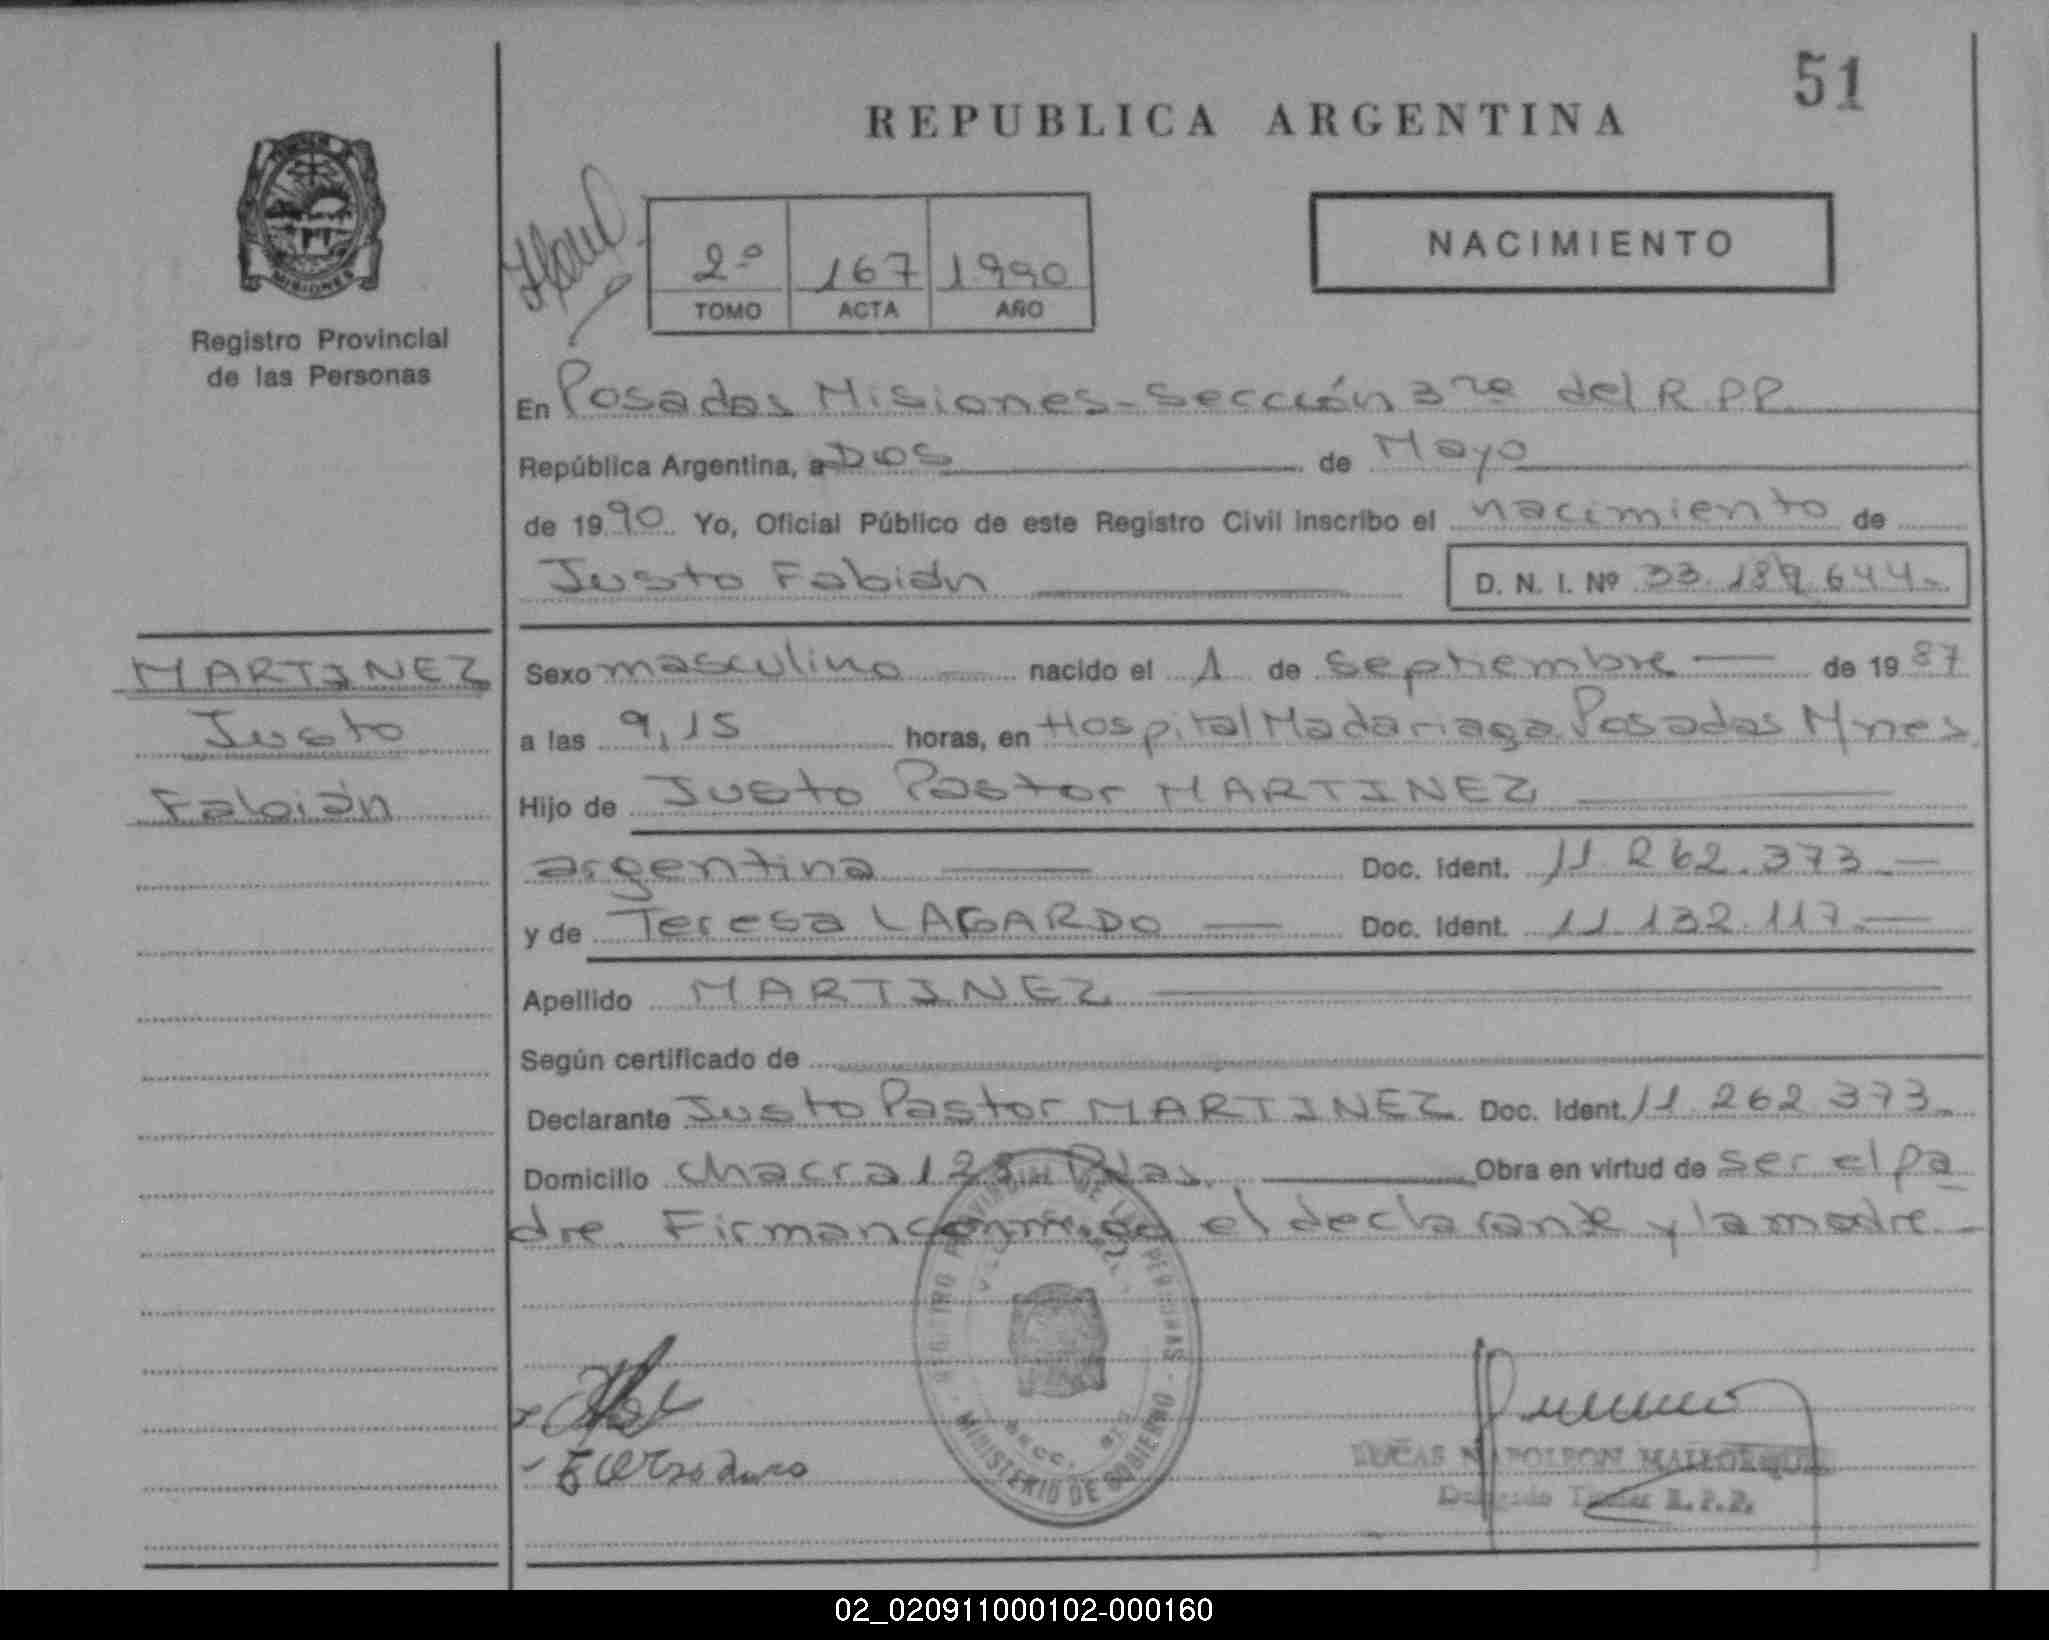 51
REPUBLICA ARGENTINA
MISIONES
Registro Provincial
de las Personas
2º 167 1990
TOMO ACTA AÑO
NACIMIENTO
En Posadas Misiones - Sección 3ra del R.P.P.
República Argentina, a Dos de Mayo
de 1990 Yo, Oficial Público de este Registro Civil inscribo el nacimiento de
Justo Fabián D. N. I. Nº 33.189.644.-
MARTINEZ
Justo
Fabián
Sexo masculino nacido el 1 de septiembre de 1987
a las 9,15 horas, en Hospital Madariaga Posadas Mnes.
Hijo de Justo Pastor MARTINEZ
argentina Doc. Ident. 11.262.373.-
y de Teresa LAGARDO Doc. Ident. 11.132.117.-
Apellido MARTINEZ
Según certificado de
Declarante Justo Pastor MARTINEZ Doc. Ident. 11.262.373.-
Domicilio chacra Pdas. Obra en virtud de ser el pa
dre. Firman conmigo el declarante y la madre.-
REGISTRO PROVINCIAL DE LAS PERSONAS
MINISTERIO DE GOBIERNO
LUCAS NAPOLEON
R.P.P.
02_020911000102-000160